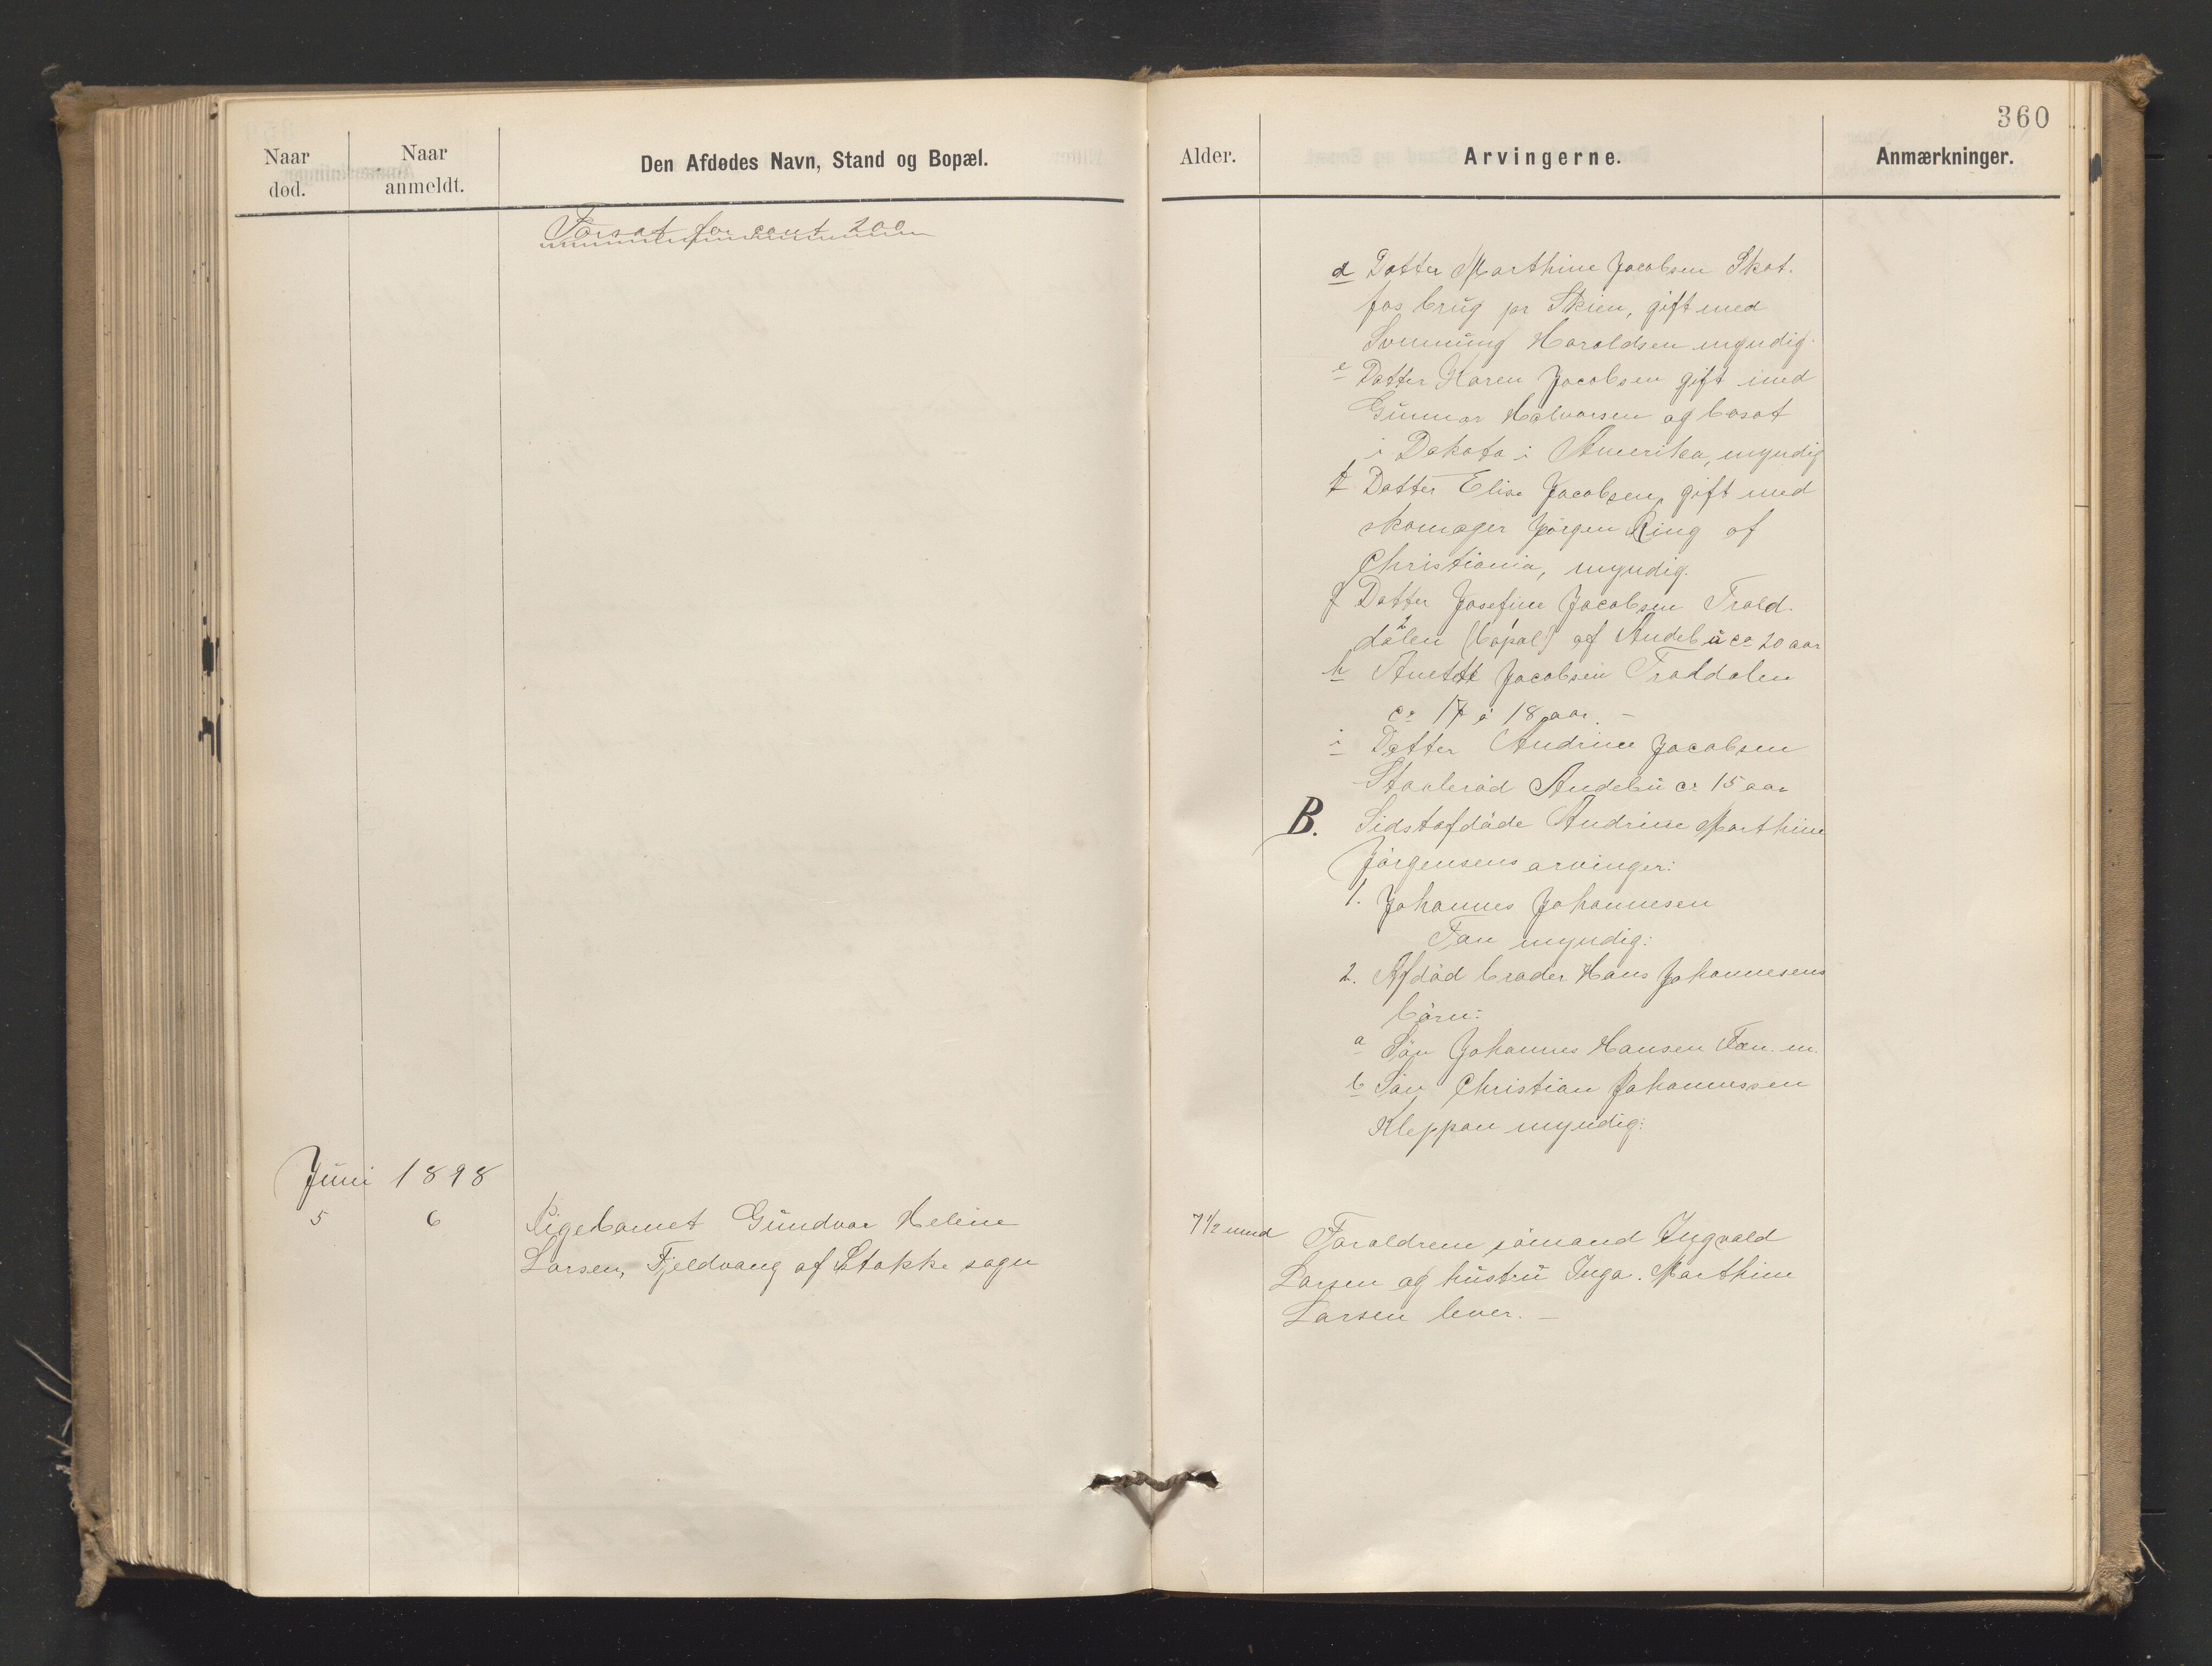 360
Naar død.
Naar anmeldt.
Den Afdødes Navn, Stand og Bopæl.
Alder.
Arvingerne.
Anmærkninger.
Forsat for cont 200
d Datter Marthine Jacobsen Skot.
fos brug pr Skien, gift med
Haroldsen myndig.
e Datter Karen Jacobsen gift med
Gunnar Halvorsen og bosat
i Dakota i Amerika, myndig
f Datter Elise Jacobsen, gift med
skomager Jørgen Ring af
Christiania, myndig.
g Datter Josefine Jacobsen Trold.
dalen (bopæl) af Andebu ca 20 aar
h Anette Jacobsen Troldalen
ca 17 à 18 aar. –
i Datter Andrine Jacobsen
Staalerød Andebu ca 15 aar
B. Sidstafdøde Andrine Marthine
Jørgensens arvinger:
1. Johannes Johannesen
Fæn myndig:
2. Afdød broder Hans Johannesens
børn:
a Søn Johannes Hansen Fæn m.
b Søn Christian Johannessen
Kleppan myndig:
Juni 1898
5 6 Pigebarnet Gundvor Helene
Larsen, Fjeldvang af Stokke sogn
7 1/2 mnd
Forældrene sømand Ingvald
Larsen og hustru Inga Marthine
Larsen lever. –